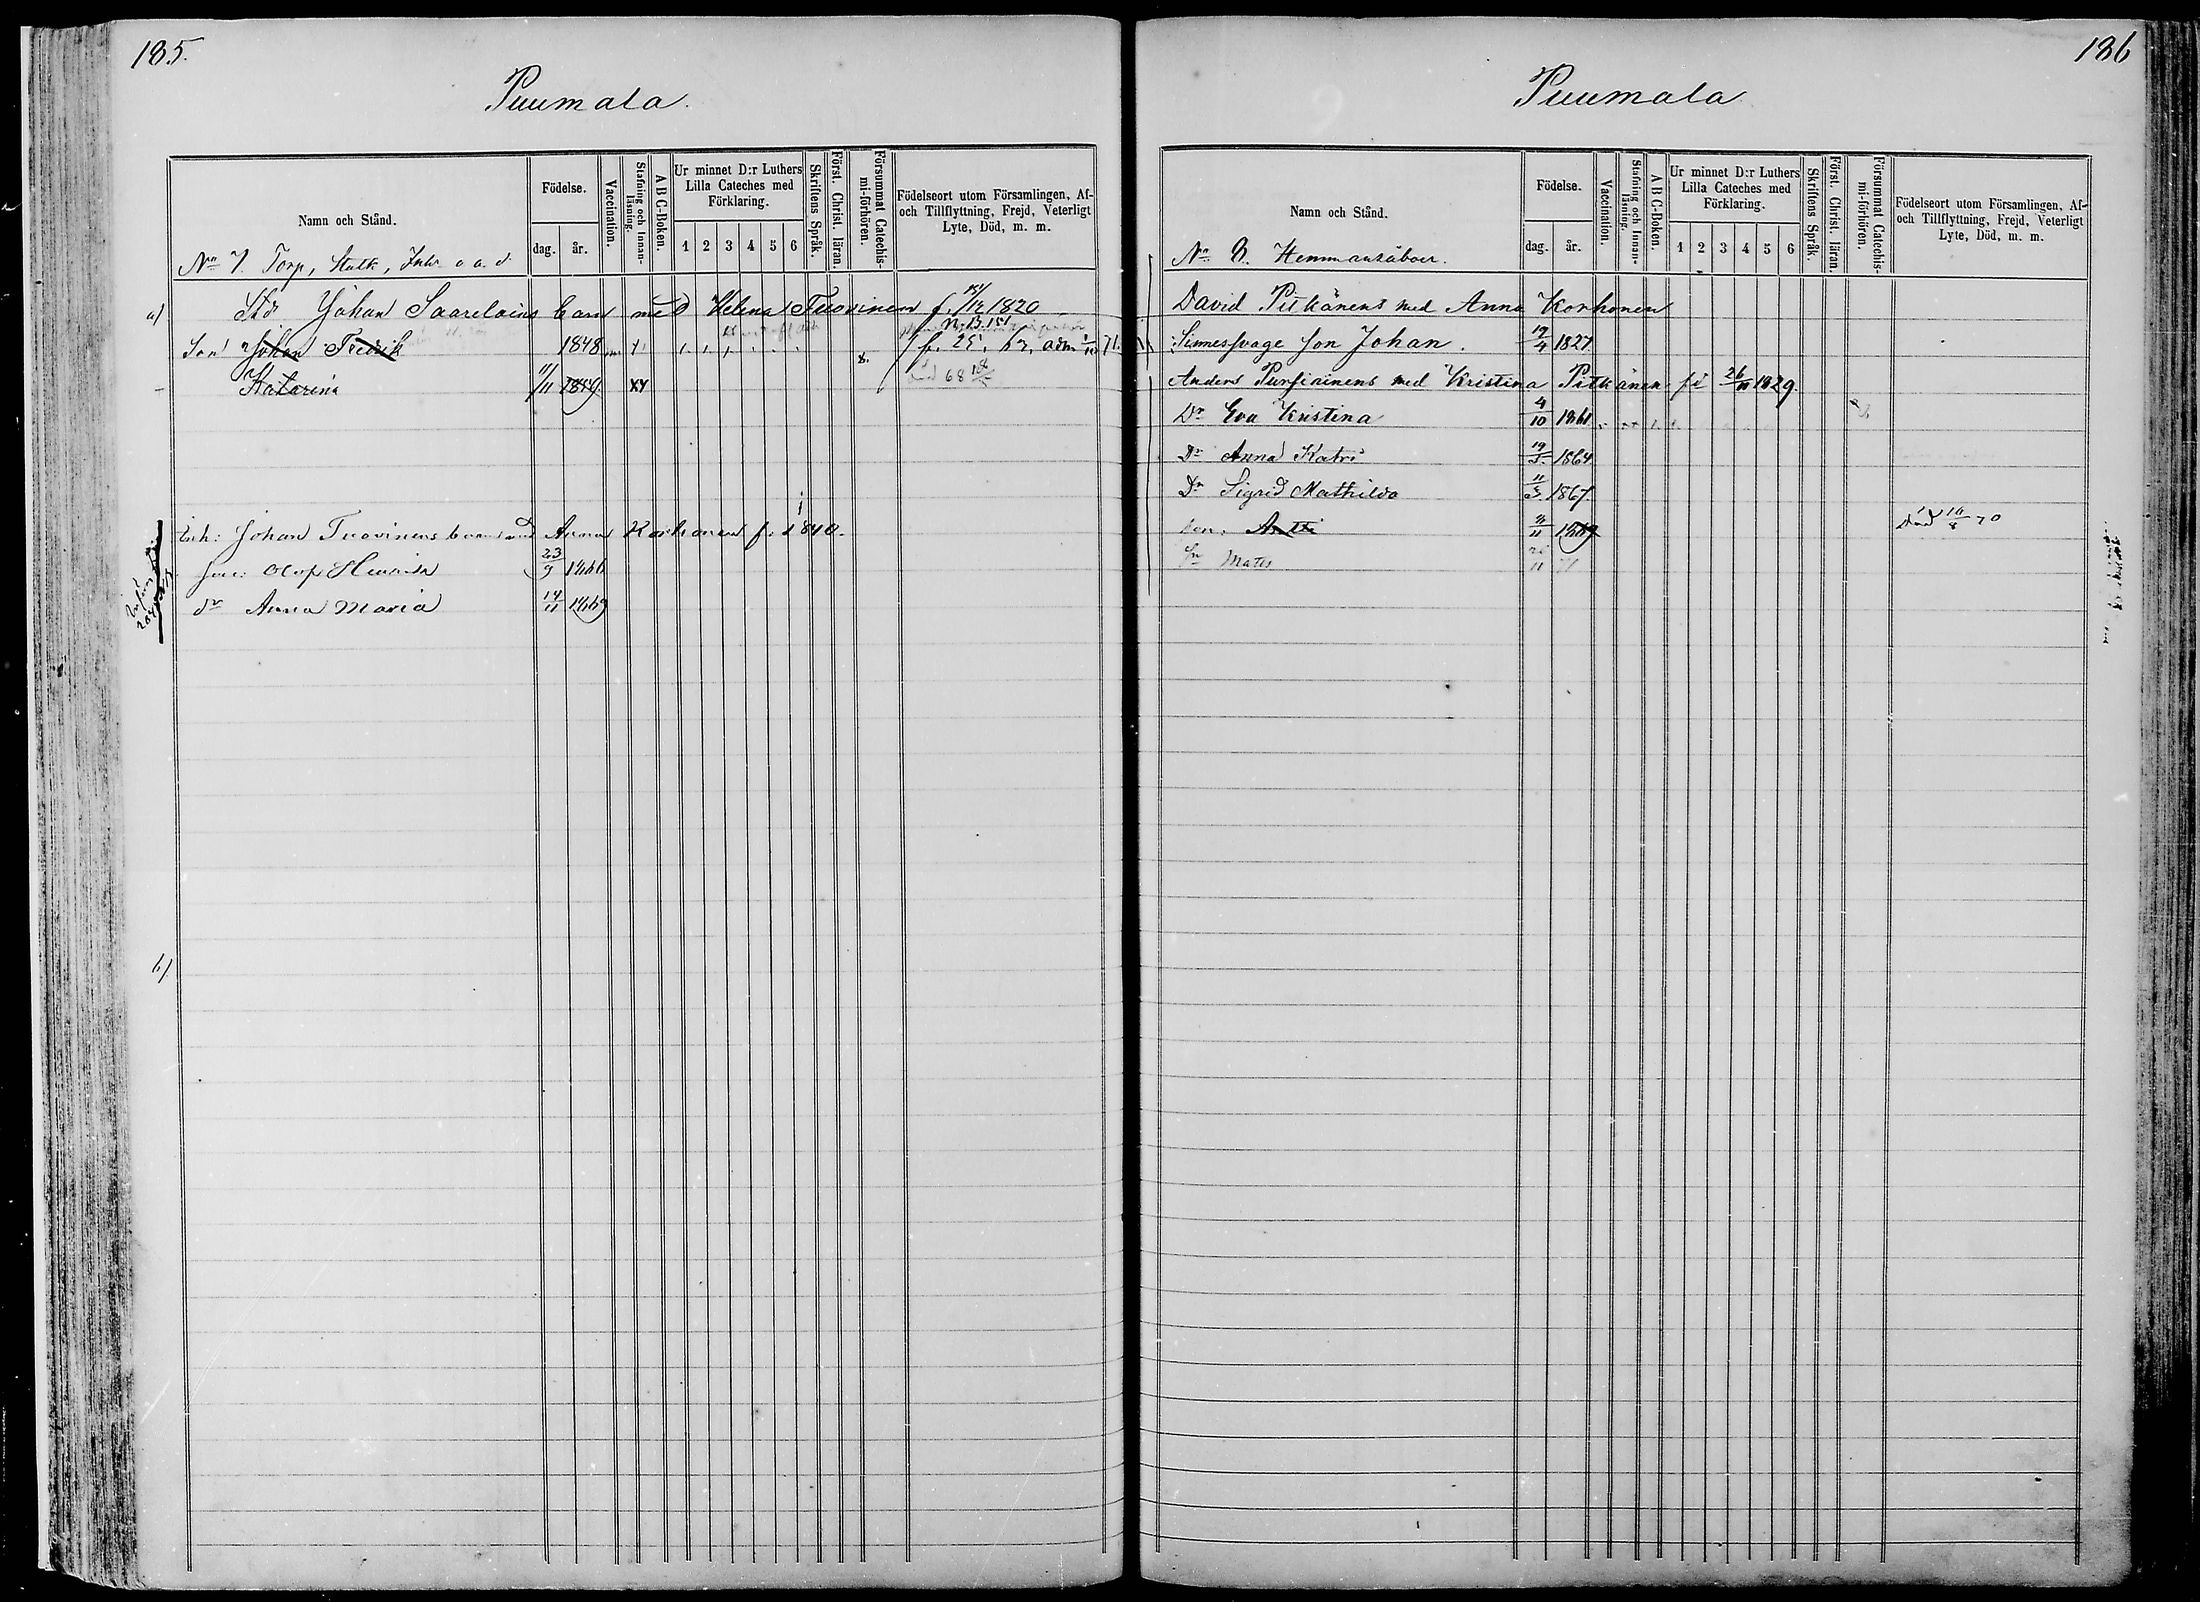 185.
Puumala.
Namn och Stånd.
Födelse.
dag. år.
Vaccination.
Stafning och Innan-läsning.
A B C-Boken.
Ur minnet D:r Luthers Lilla Cateches med Förklaring.
1 2 3 4 5 6
Skriftens Språk.
Först. Christ. läran.
Försummat Catechis-mi-förhören.
Födelseort utom Församlingen, Af-
och Tillflyttning, Frejd, Veterligt
Lyte, Död, m. m.
No 7. Torp, Statk, Inh. o a. d.
a) Johan Saarelains barn med Helena Tuovinen f. 1820
Son Johan Fredrik 1848
Katarina 11/11 1849 XY
Inh: Johan Tuovinens barn med Anna Korhonen f. 1840.
son: Olof Henrik 23/9 1866
dr Anna Maria 14/11 1869
b)
186
Puumala
Namn och Stånd.
Födelse.
dag. år.
Vaccination.
Stafning och Innan-läsning.
A B C-Boken.
Ur minnet D:r Luthers Lilla Cateches med Förklaring.
1 2 3 4 5 6
Skriftens Språk.
Först. Christ. läran.
Försummat Catechis-mi-förhören.
Födelseort utom Församlingen, Af-
och Tillflyttning, Frejd, Veterligt
Lyte, Död, m. m.
No 8. Hemmansåboer.
David Pitkänens med Anna Korhonen
Sinnessvage son Johan. 19/4 1827
Anders Pursiainens med Kristina Pitkänen 26/11 1829.
Dr Eva Kristina 4/10 1861
Dr Anna Katri 19/5 1864
Dr Sigrid Mathilda 11/5 1867
son: Antti 1869 Död 16/8 70
Sn Mats 71